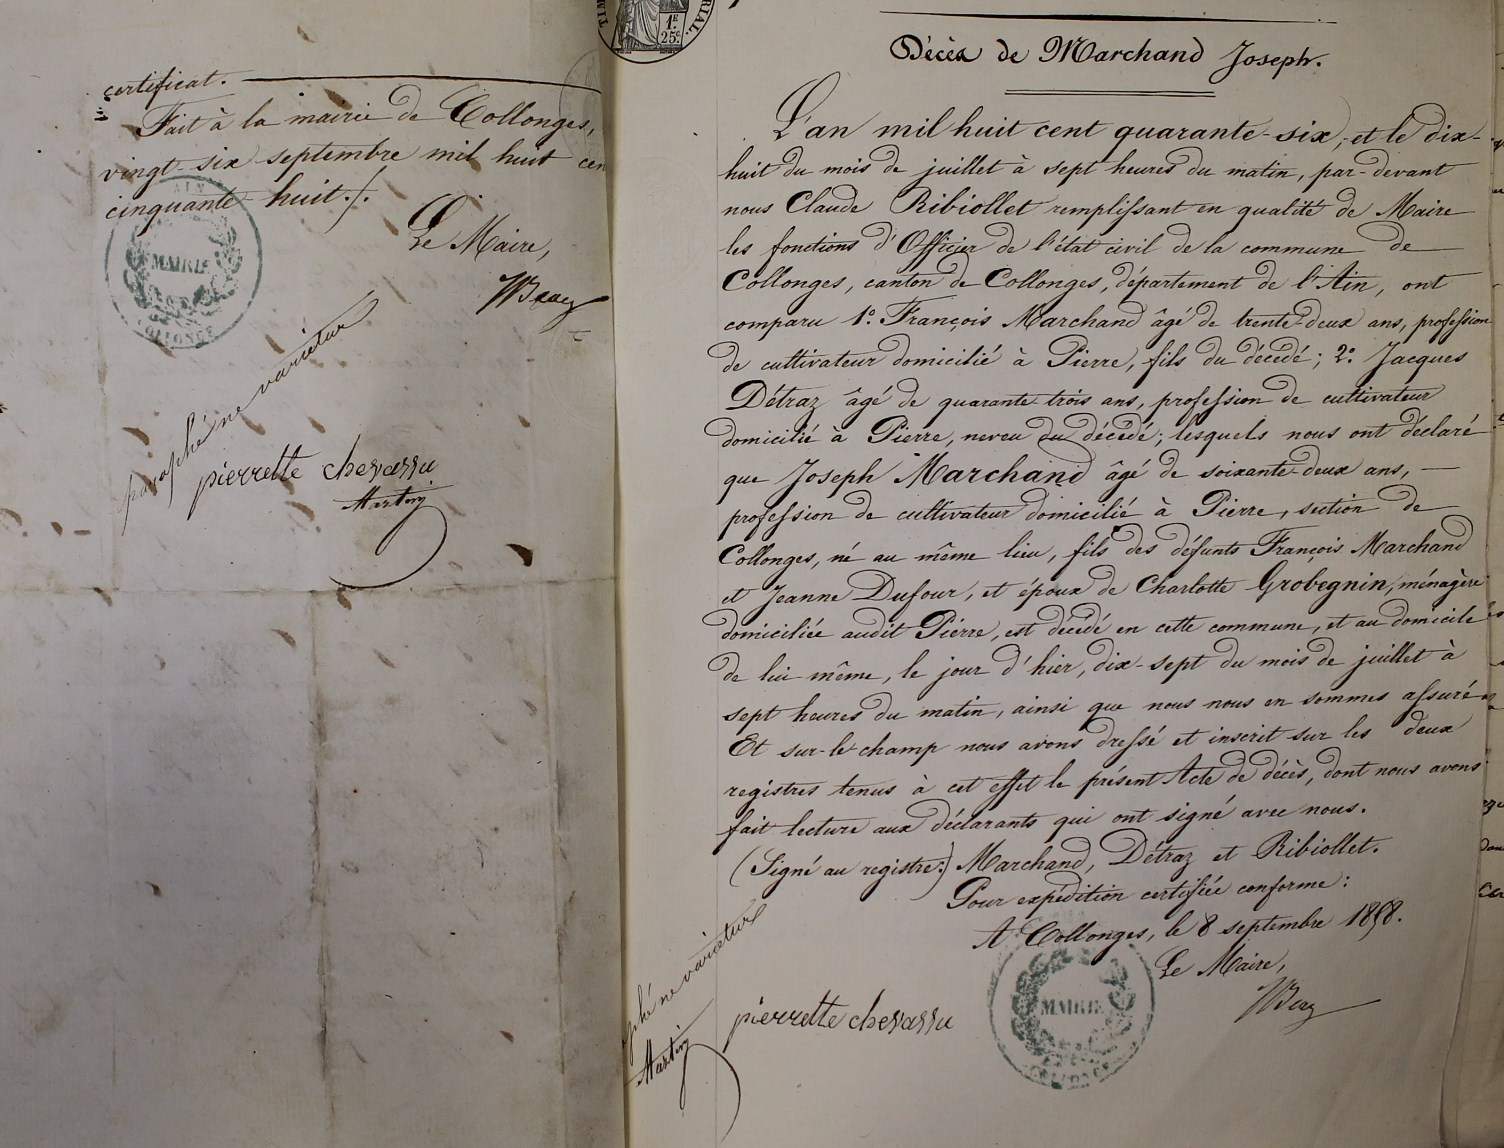 certificat.
Fait à la mairie de Collonges,
vingt-six septembre mil huit cen
cinquante huit./.
Le Maire,
MAIRIE
COLLONGES
paraphé ne varietur
pierrette chevassu
Martin
1F
25c
Décès de Marchand Joseph.
L'an mil huit cent quarante-six, et le dix-
huit du mois de juillet à sept heures du matin, par-devant
nous Claude Ribiollet remplissant en qualité de Maire
les fonctions d'Officier de l'état civil de la commune de
Collonges, canton de Collonges, département de l'Ain, ont
comparu 1.° François Marchand âgé de trente-deux ans, profession
de cultivateur domicilié à Pierre, fils du décédé; 2.° Jacques
Détraz âgé de quarante trois ans, profession de cultivateur
domicilié à Pierre, neveu du décédé; lesquels nous ont déclaré
que Joseph Marchand âgé de soixante-deux ans, —
profession de cultivateur domicilié à Pierre, section de
Collonges, né au même lieu, fils des défunts François Marchand
et Jeanne Dufour, et époux de Charlotte Grobegnin, ménagère
domiciliée audit Pierre, est décédé en cette commune, et au domicile
de lui-même, le jour d'hier, dix-sept du mois de juillet à
sept heures du matin, ainsi que nous nous en sommes assuré
Et sur-le-champ nous avons dressé et inscrit sur les deux
registres tenus à cet effet le présent Acte de décès, dont nous avons
fait lecture aux déclarants qui ont signé avec nous.
(Signé au registre:) Marchand, Détraz et Ribiollet.
Pour expédition certifiée conforme:
A Collonges, le 8 septembre 1858.
Le Maire,
MAIRIE
COLLONGES
phé ne varietur
pierrette chevassu
Martin